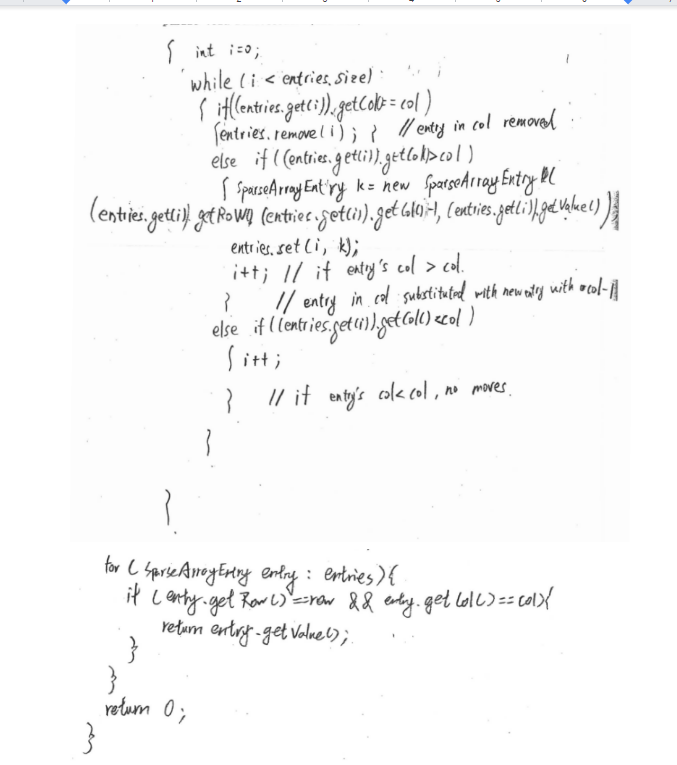 { int i=0;
while (i < entries.size)
{ if((entries.get(i)).getCol()==col)
{entries.remove(i); } // entry in col removed
else if ((entries.get(i)).getCol()>col)
{ SparseArrayEntry k = new SparseArrayEntry
(entries.get(i)).getRow() (entries.get(i)).getCol()-1, (entries.get(i)).getValue())
entries.set(i, k);
i++; // if entry's col > col.
} // entry in col substituted with new entry with col-1
else if ((entries.get(i)).getCol()<col)
{ i++;
} // if entry's col<col, no moves.
}
}
for ( SparseArrayEntry entry : entries){
if (entry.getRow()==row && entry.getCol()==col){
return entry.getValue();
}
}
return 0;
}